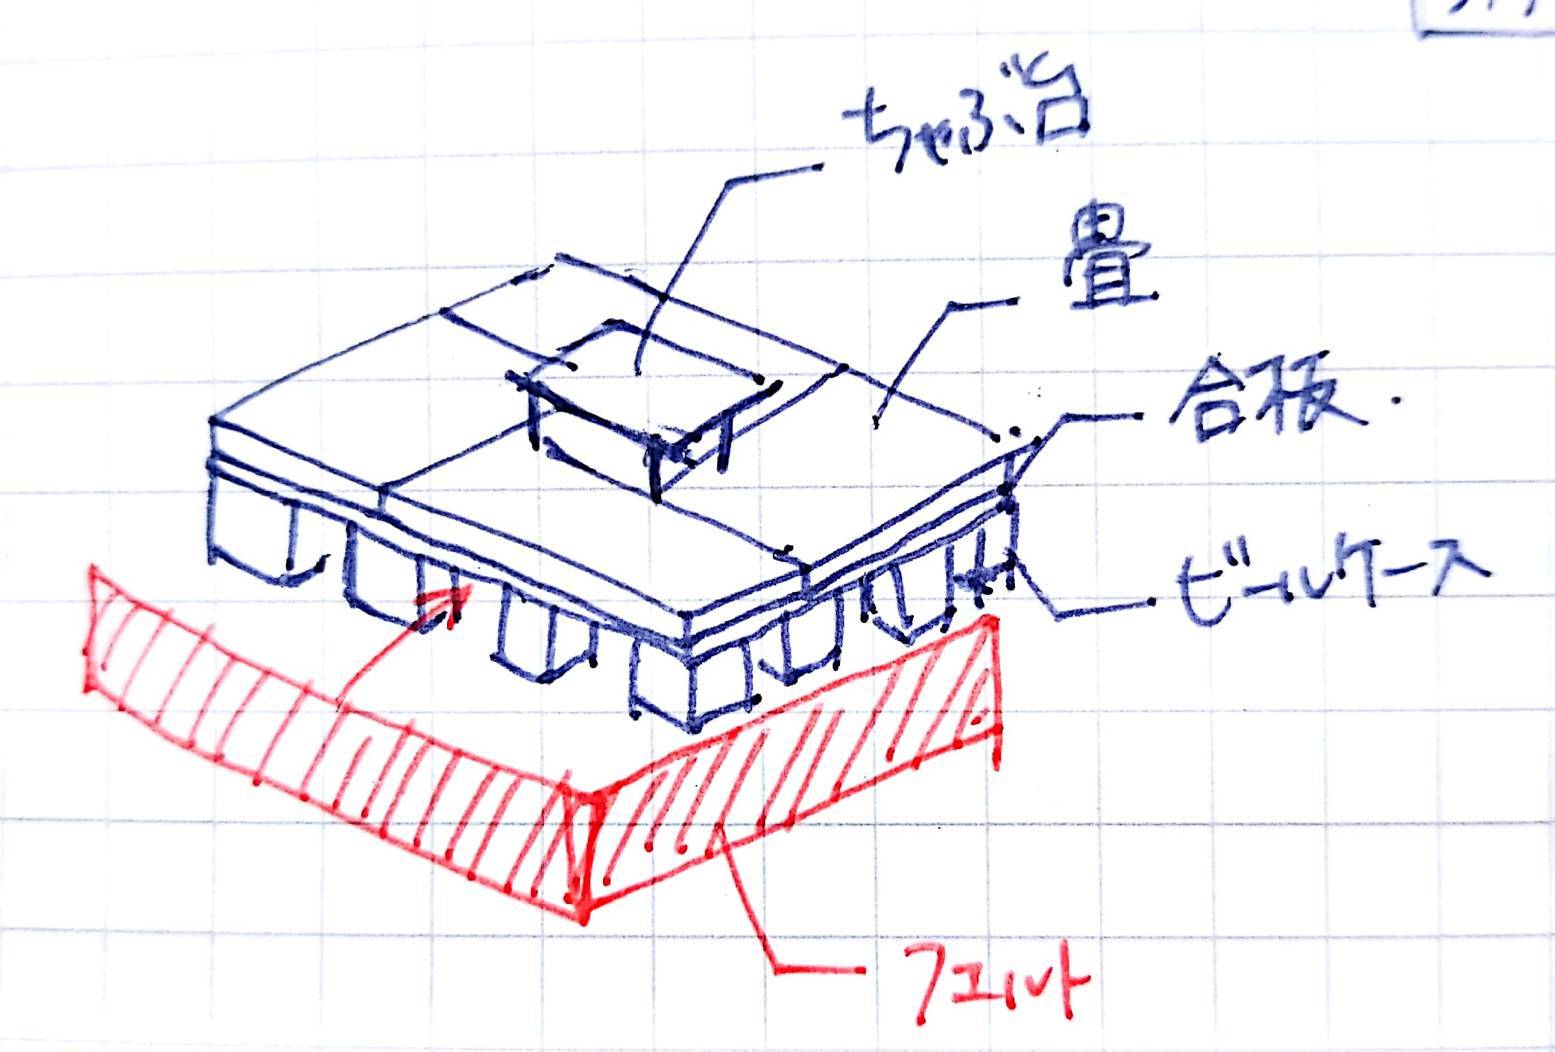 ちゃぶ台
畳
合板
ビールケース
フェルト